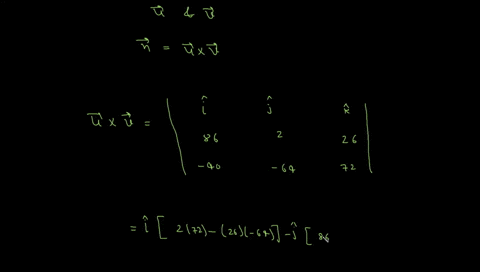 u⃗ & v⃗
n⃗ = u⃗ × v⃗
u⃗ × v⃗ = | î ĵ k̂ |
86 2 26
-40 -64 72
= î [ 2(72) - (26)(-64) ] - ĵ [ 86